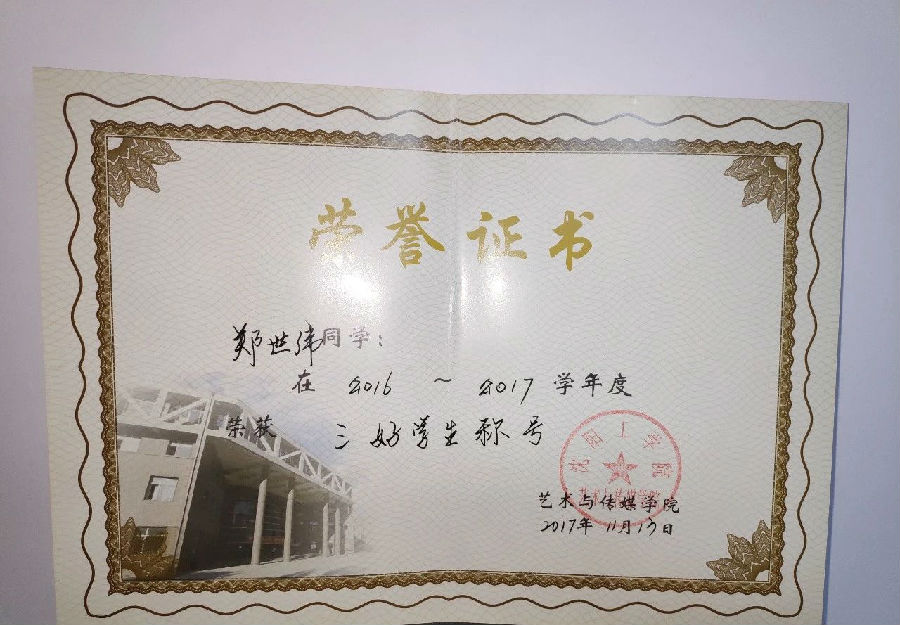 荣誉证书
郑世纬同学：
在 2016 ~ 2017 学年度
荣获 三好学生称号
艺术与传媒学院
2017年 11月13日